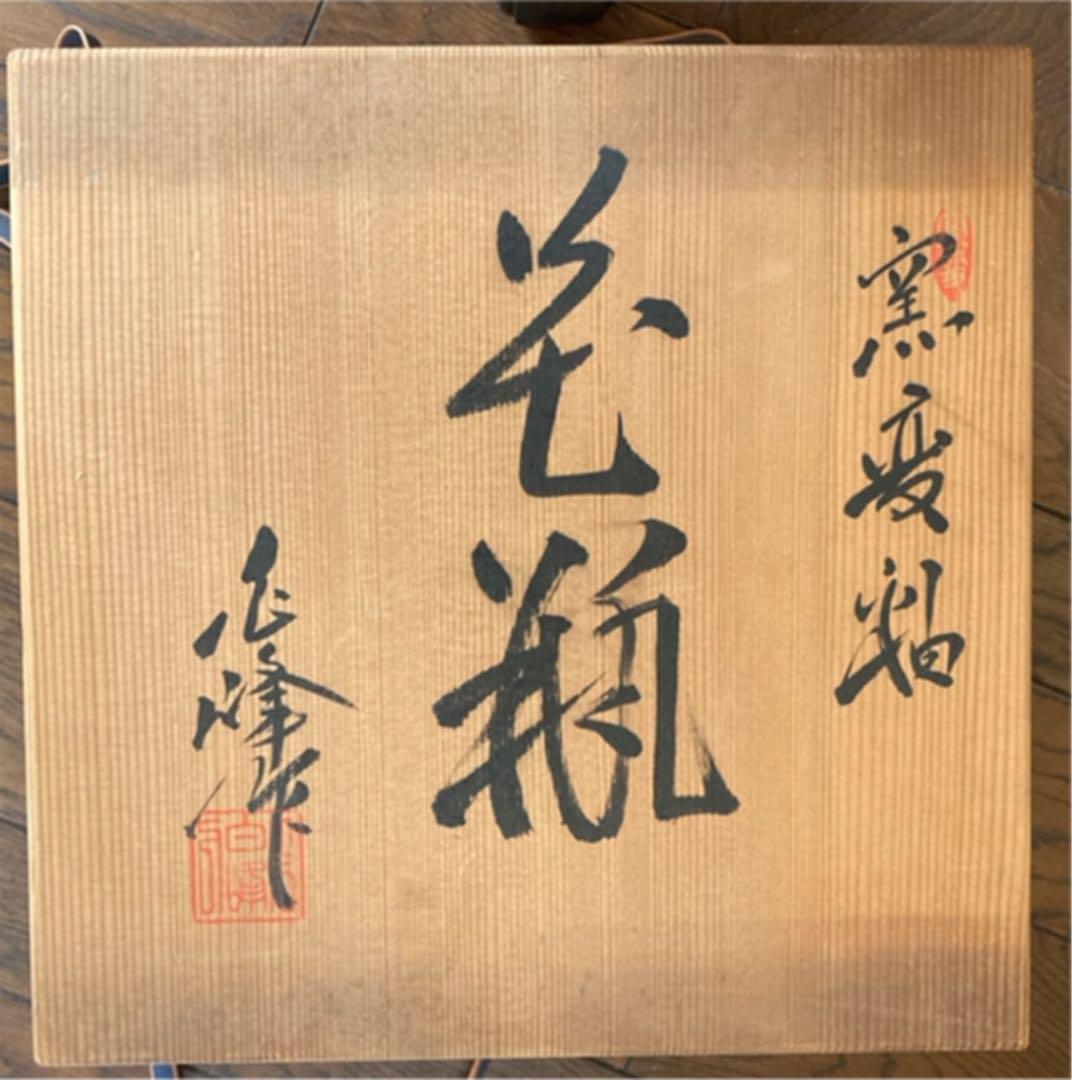 窯変釉
花瓶
峰作